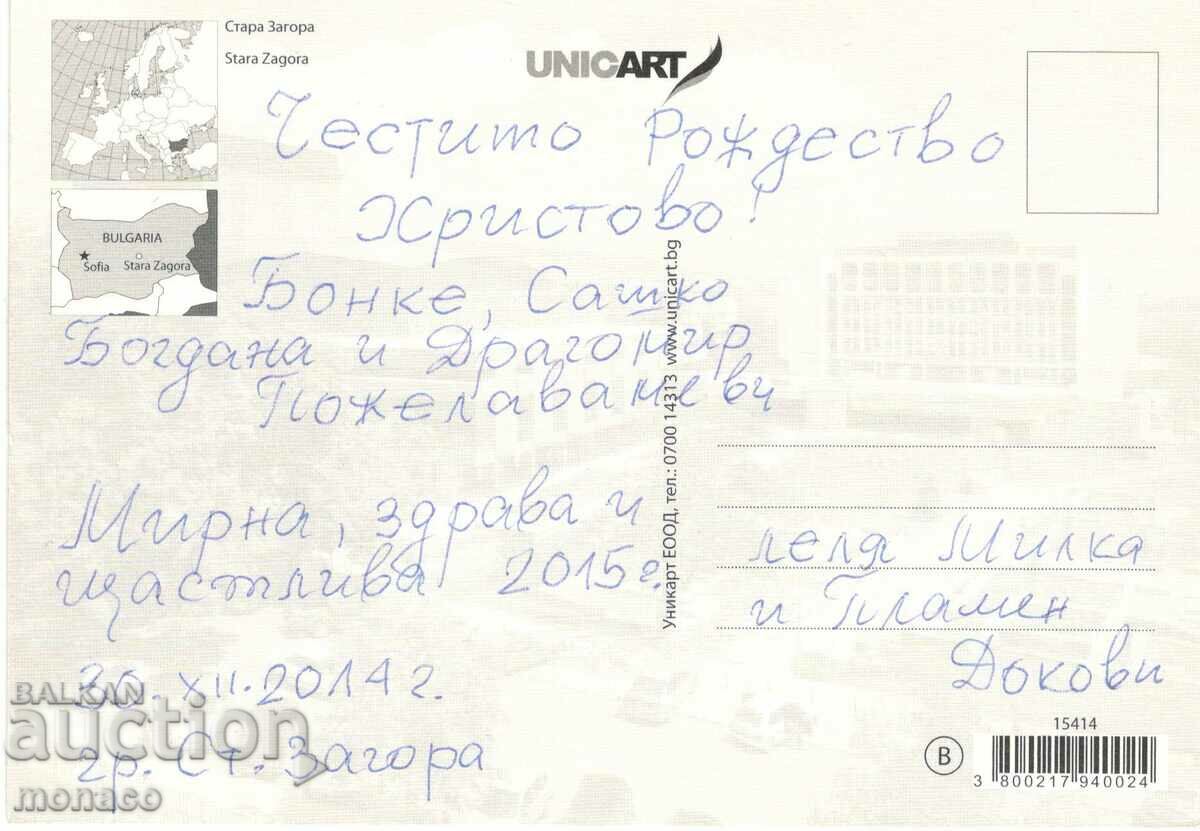 Стара Загора
Stara Zagora
UNICART
BULGARIA
Sofia
Stara Zagora
Честито Рождество
Христово!
Бонке, Сашко
Богдана и Драгомир
Пожелаваме Ви
Мирна, здрава и
щастлива 2015г.
30. XII. 2014 г.
гр. Ст. Загора
Уникарт ЕООД, тел.: 0700 14313 www.unicart.bg
леля Милка
и Пламен
Докови
15414
B
3 800217 940024
BALKAN
auction
monaco